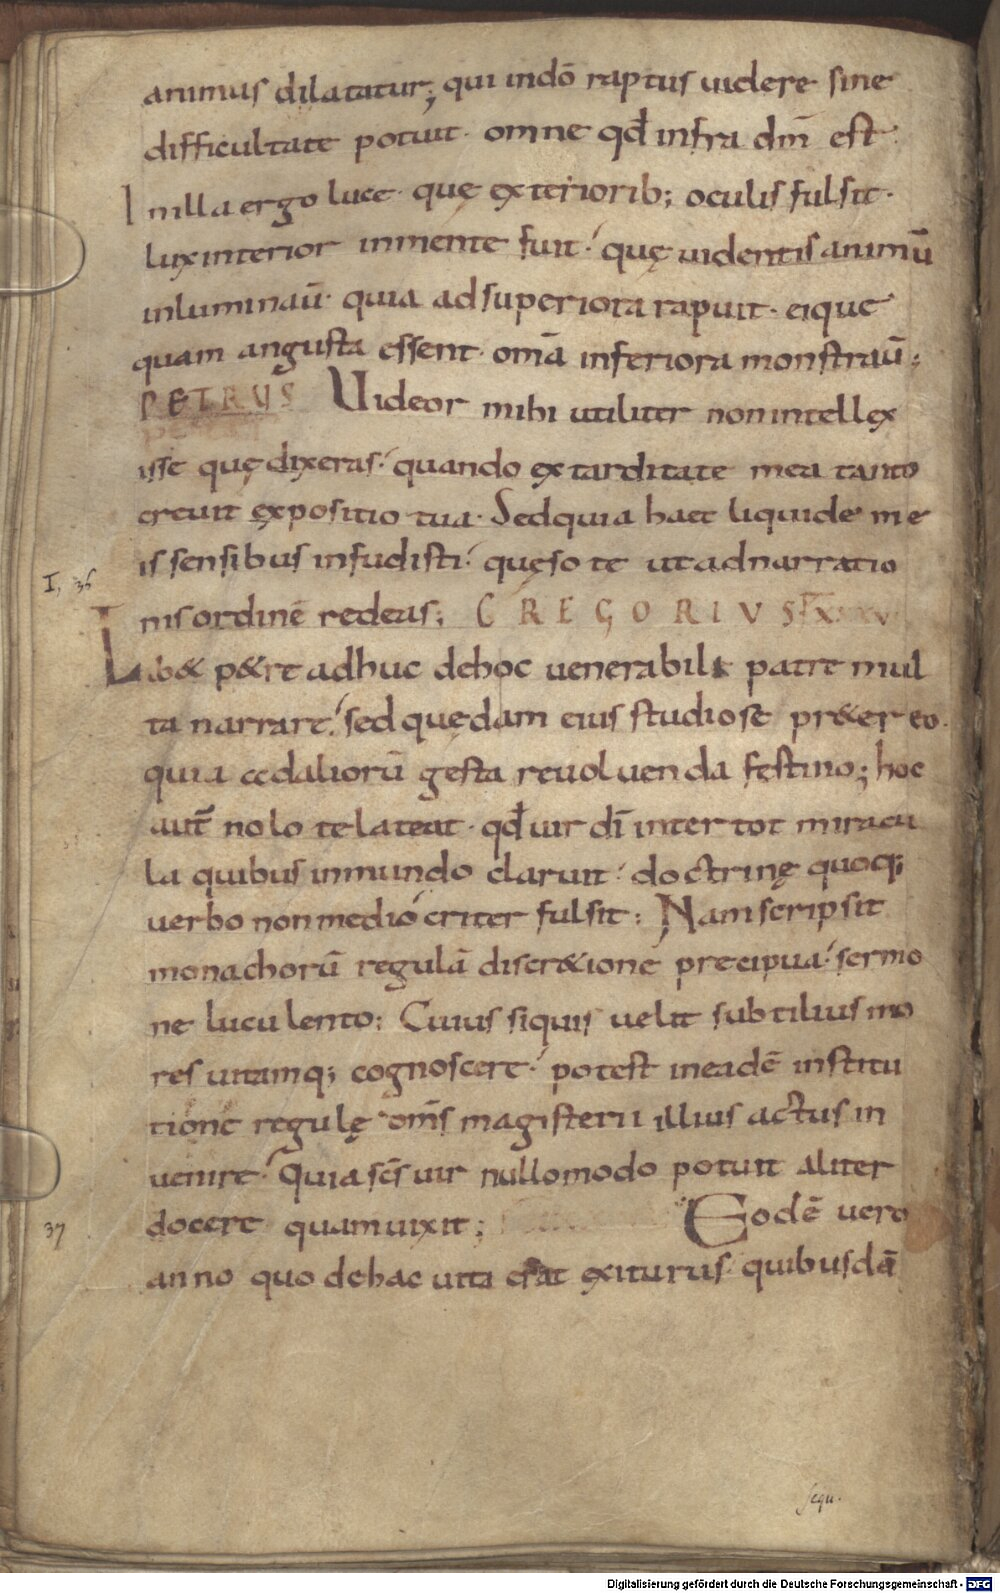 animus dilatatur; qui indō raptus uidere sine
difficultate potuit · omne qđ infra dm̄ est ·
In illa ergo luce · quę exteriorib; oculis fulsit ·
lux interior inmente fuit · quę uidentis animū
inluminau̅ · quia ad superiora rapuit · eique
quam angusta essent · omā inferiora monstrau̅;
PETRUS Uideor mihi utiliter non intellex
isse quę dixeras · quando ex tarditate mea tanto
creuit expositio tua · Sed quia haec liquide me
is sensibus infudisti · quęso te ut ad narratio
I, 36
nis ordinē redeas; GREGORIUS
Lib& p&re adhuc dehoc uenerabili patre mul
ta narrare · sed quędam eius studiose pr&ereo ·
quia ad aliorū gesta reuoluenda festino; hoc
aut̅ nolo te lateat · qđ uir dī inter tot miracu
la quibus in mundo claruit · doctrinę quoq;
uerbo non mediocriter fulsit; Nam scripsit
monachorū regulā discr&ione precipua · sermo
ne luculento; Cuius siquis uelit subtilius mo
res uitamq; cognoscere · potest in eadē institu
tione regulę om̄s magisterii illius actus in
uenire · Quia scs̄ uir nullomodo potuit aliter
37
docere quam uixit; Eodē uero
anno quo dehac uita erat exiturus · quibusdā
sequ.
Digitalisierung gefördert durch die Deutsche Forschungsgemeinschaft - DFG